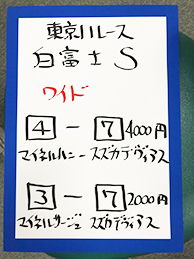 東京11レース
白富士S
ワイド
4-7 4000円
マイネルハニー スズカデヴィアス
3-7 2000円
マイネルサージュ スズカデヴィアス